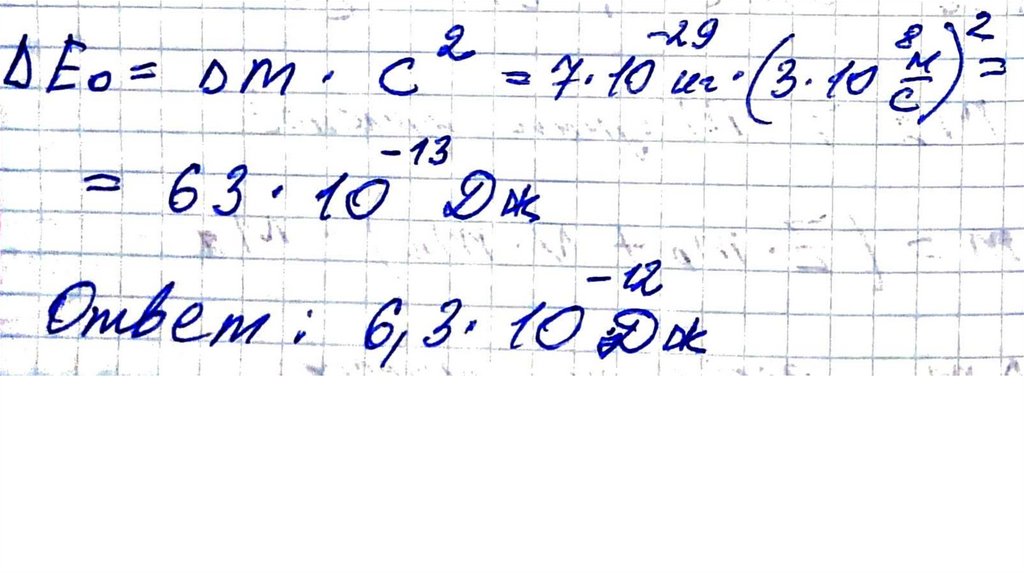 ΔE₀ = Δm · c² = 7·10⁻²⁹ кг · (3·10⁸ м/с)² =
= 63 · 10⁻¹³ Дж
Ответ: 6,3 · 10⁻¹² Дж